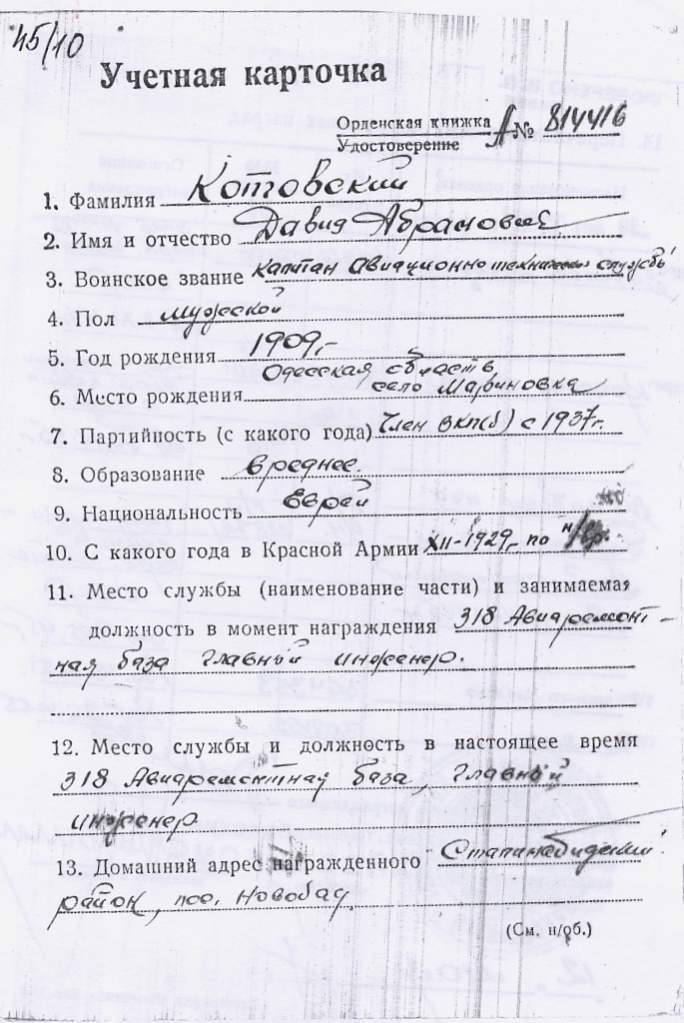 45/10
Учетная карточка
Орденская книжка А № 814416
Удостоверение
1. Фамилия Котовский
2. Имя и отчество Давид Абрамович
3. Воинское звание Капитан Авиационно технической службы
4. Пол мужской
5. Год рождения 1909 г.
Одесская область
6. Место рождения село Мариновка
7. Партийность (с какого года) Член ВКП(б) с 1937 г.
8. Образование среднее.
9. Национальность Еврей
10. С какого года в Красной Армии XII-1929 г. по н/вр.
11. Место службы (наименование части) и занимаемая
должность в момент награждения 318 Авиаремонт-
ная база Главный инженер.
12. Место службы и должность в настоящее время
318 Авиаремонтная база, Главный
инженер
13. Домашний адрес награжденного
район, пос. Новобад
(См. н/об.)